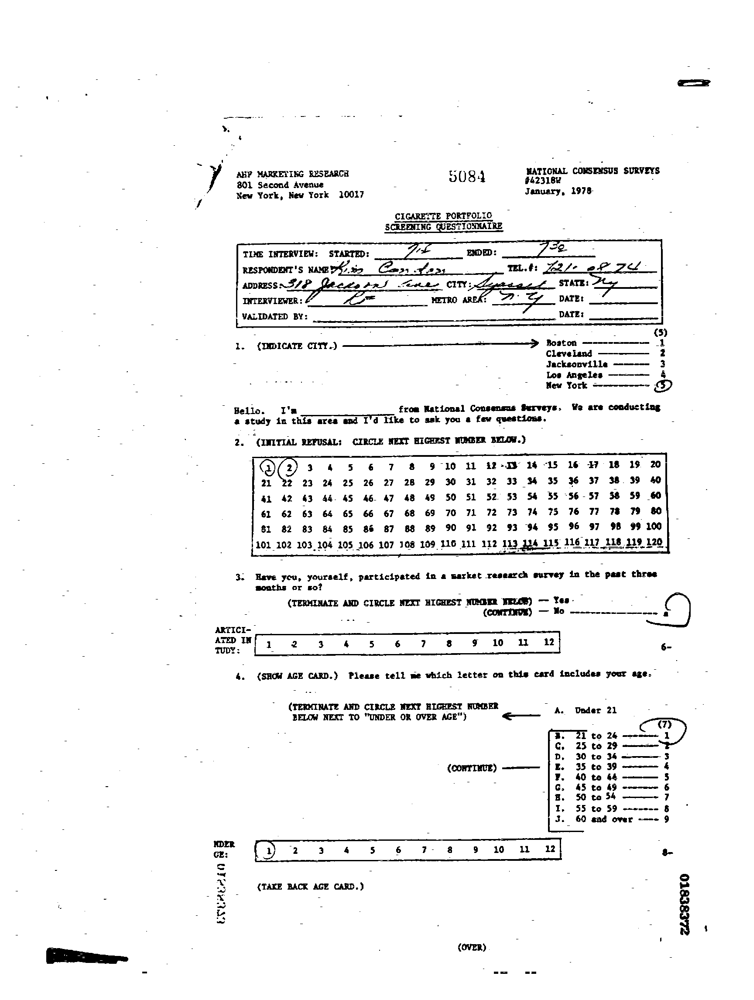 AHF MARKETING RESEARCH 5084 NATIONAL CONSENSUS SURVEYS
801 Second Avenue #42318W
New York, New York 10017 January, 1978
CIGARETTE PORTFOLIO
SCREENING QUESTIONNAIRE
TIME INTERVIEW: STARTED: ENDED: 730
RESPONDENT'S NAME: Kim TEL.#: 721-0874
ADDRESS: 318 Jackson CITY: STATE: NY
INTERVIEWER: METRO AREA: N.Y DATE:
VALIDATED BY: DATE:
(5)
1. (INDICATE CITY.) Boston 1
Cleveland 2
Jacksonville 3
Los Angeles 4
New York 5
Hello. I'm ____ from National Consensus Surveys. We are conducting
a study in this area and I'd like to ask you a few questions.
2. (INITIAL REFUSAL: CIRCLE NEXT HIGHEST NUMBER BELOW.)
1 2 3 4 5 6 7 8 9 10 11 12 13 14 15 16 17 18 19 20
21 22 23 24 25 26 27 28 29 30 31 32 33 34 35 36 37 38 39 40
41 42 43 44 45 46 47 48 49 50 51 52 53 54 55 56 57 58 59 60
61 62 63 64 65 66 67 68 69 70 71 72 73 74 75 76 77 78 79 80
81 82 83 84 85 86 87 88 89 90 91 92 93 94 95 96 97 98 99 100
101 102 103 104 105 106 107 108 109 110 111 112 113 114 115 116 117 118 119 120
3. Have you, yourself, participated in a market research survey in the past three
months or so?
(TERMINATE AND CIRCLE NEXT HIGHEST NUMBER BELOW) — Yes
(CONTINUE) — No
ARTICI-
ATED IN
TUDY: 1 2 3 4 5 6 7 8 9 10 11 12 6-
4. (SHOW AGE CARD.) Please tell me which letter on this card includes your age.
(TERMINATE AND CIRCLE NEXT HIGHEST NUMBER
BELOW NEXT TO "UNDER OR OVER AGE") A. Under 21
(7)
B. 21 to 24 1
C. 25 to 29 2
D. 30 to 34 3
(CONTINUE) E. 35 to 39 4
F. 40 to 44 5
G. 45 to 49 6
H. 50 to 54 7
I. 55 to 59 8
J. 60 and over 9
NDER
GE: 1 2 3 4 5 6 7 8 9 10 11 12 8-
(TAKE BACK AGE CARD.)
01838372
(OVER)